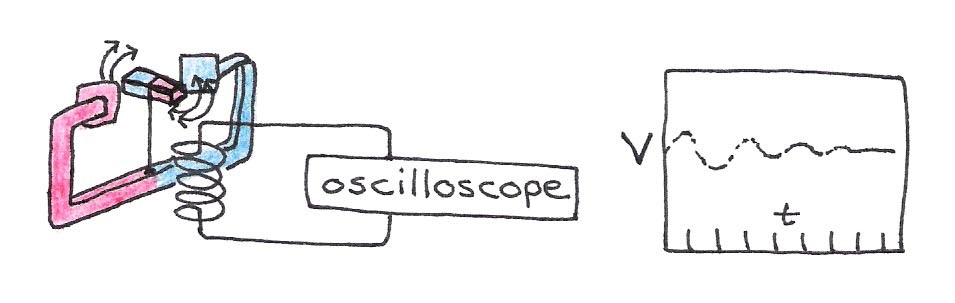 oscilloscope
V
t